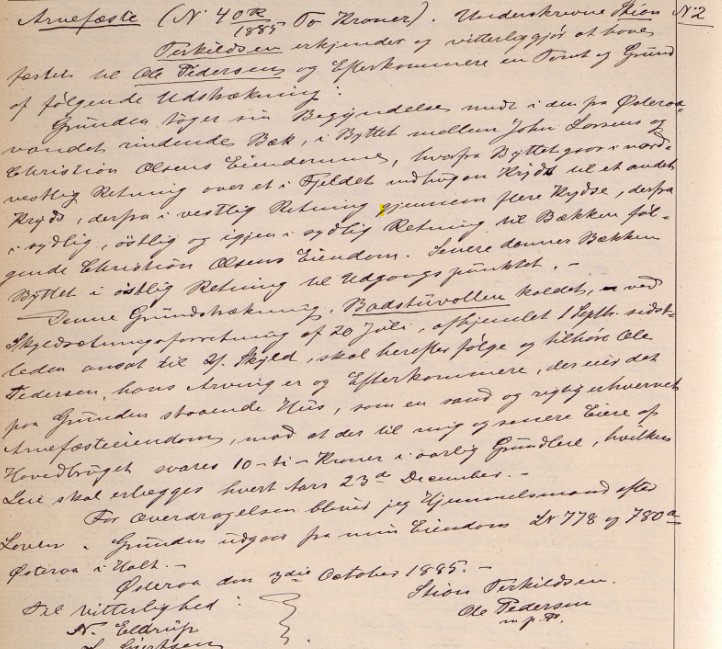 Arvefæste (N. 40 R/1885 To Kroner). Underskrevne Stian No 2
Terkildsen erkjender og vitterliggjør at have
fæstet til Ole Pedersen og Efterkommere en Tomt og Grund
af følgende Udstrækning:
Grunden tager sin Begyndelse nede i den fra Østeraa-
vandet rindende Bæk, i Byttet mellem John Larsens og
Christian Olsens Eiendomme, hvorfra Byttet gaar i nord-
vestlig Retning over et i Fjeldet udhugen Kryds til et andet
Kryds, derfra i vestlig Retning gjennem flere Krydse, derfra
i sydlig, østlig og igjen i sydlig Retning til Bækken føl-
gende Christian Olsens Eiendom. Senere danner Bækken
Byttet i østlig Retning til Udgangspunktet. -
Denne Grundstrækning, Badstuvollen kaldet, ved
Skyldsætningsforretning af 20 Juli, afhjemlet 1 Septr. sidst-
leden ansat til Skyld, skal herefter følge og tilhøre Ole
Pedersen, hans Arvinger og Efterkommere, der eie det
paa Grunden staaende Hus, som en sand og rigtig erhvervet
Arvefæsteeiendom, mod at der til mig og senere Eiere af
Hovedbruget svares 10 - ti - Kroner i aarlig Grundleie, hvilken
Leie skal erlægges hvert Aars 23de December. -
For Overdragelsen bliver jeg Hjemmelsmand efter
Loven. Grunden udgaar fra min Eiendom LN 778 og 780a
Østeraa i Holt. -
Østeraa den 3die October 1885. -
Til Vitterlighed: Stian Terkildsen.
N. Eldrup Ole Pedersen
m. p. P.